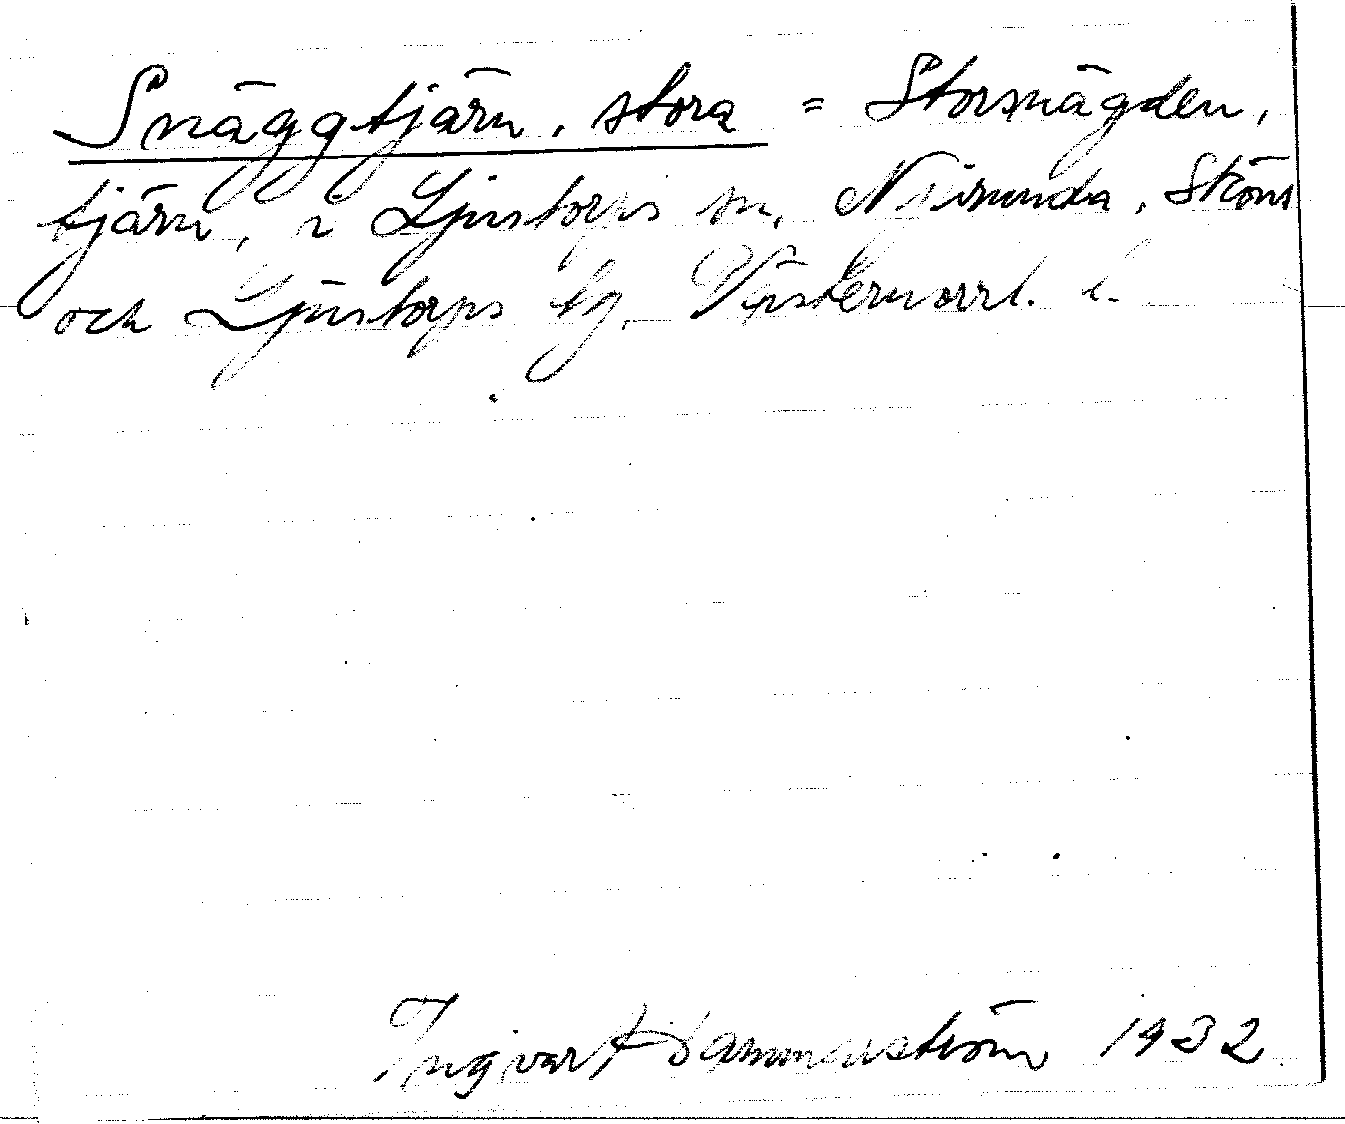 Snäggtjärn, stora = Storsnägden,
tjärn, i Ljustorps sn, Njurunda, Sköns
och Ljustorps tg, Västernorrl. l.
Ingvar Hammarström 1932